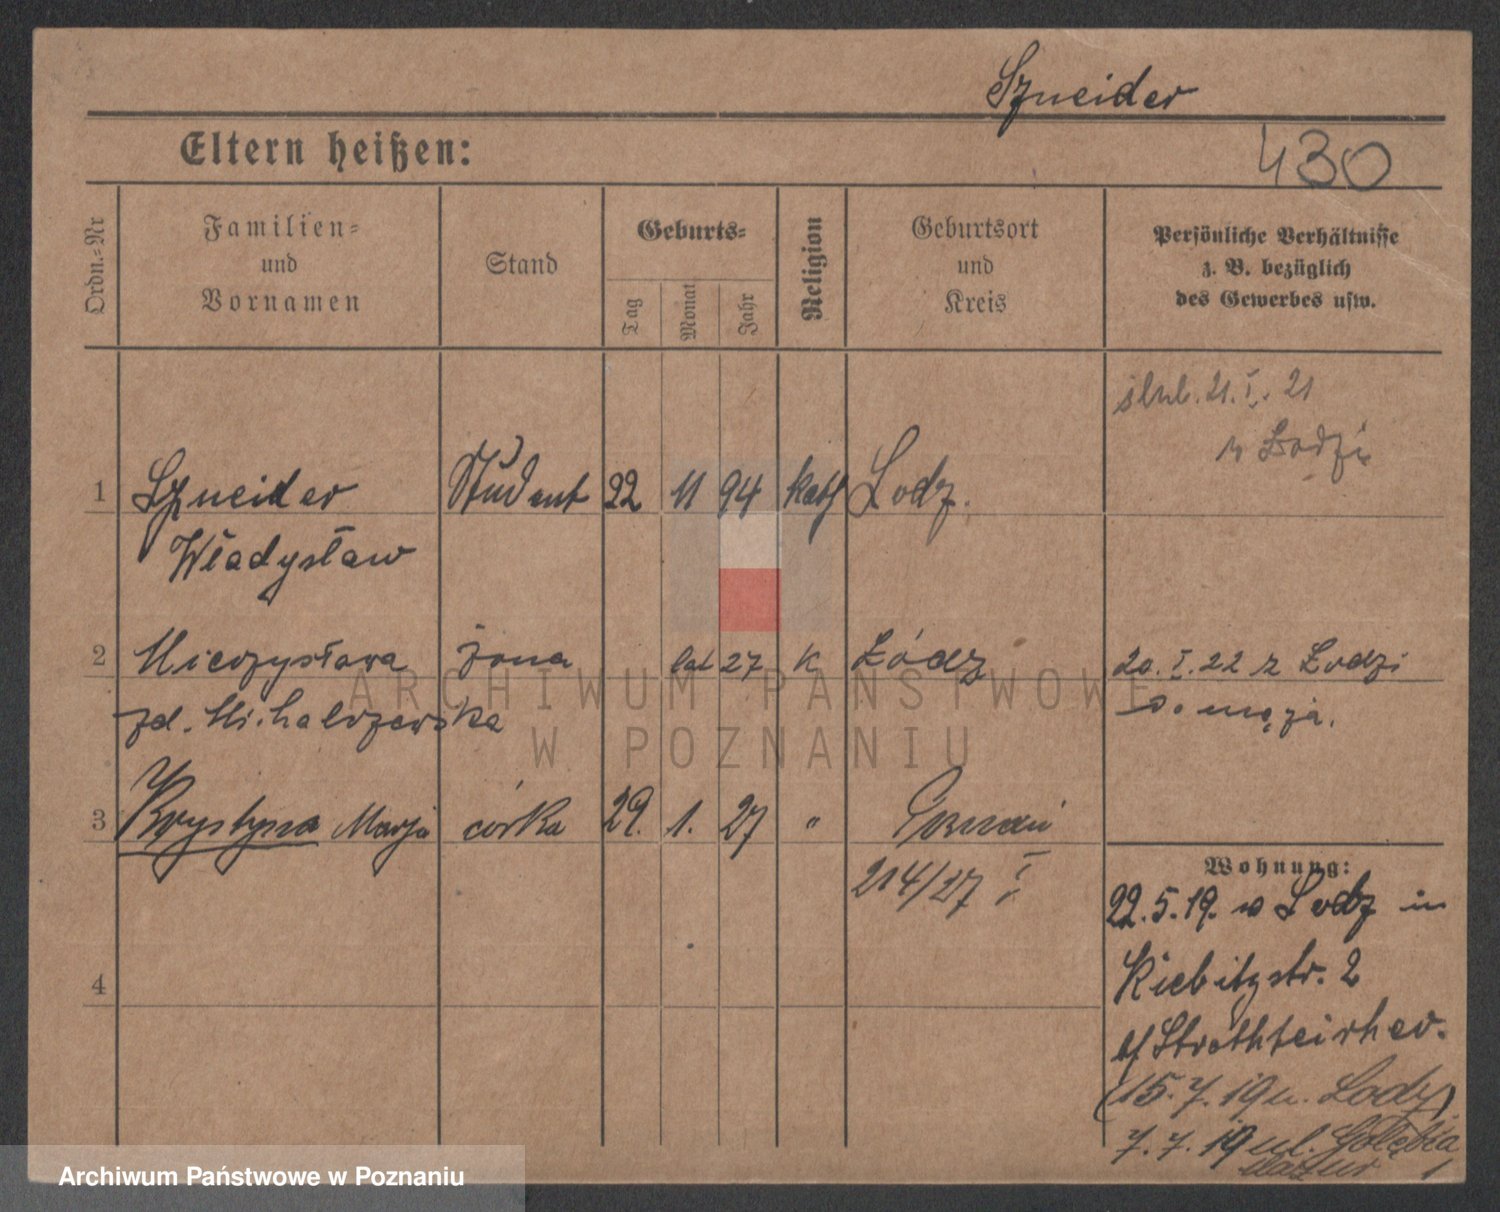 Szneider
Eltern heißen:
430
Ordn.=Nr
Familien=
und
Vornamen
Stand
Geburts=
Tag
Monat
Jahr
Religion
Geburtsort
und
Kreis
Persönliche Verhältnisse
z. B. bezüglich
des Gewerbes usw.
ślub. 21. I. 21
w Łodzi
1 Szneider Student 22 11 94 kath Lodz.
Władysław
2 Mieczysława żona lat 27 K Łódź 20. I. 22 z Lodzi
zd. Michalczewska do męża.
3 Krystyna Marja córka 29. 1. 27 " Poznań
214/27 I
Wohnung:
22.5.19. w Lodz in
Kiebitzstr. 2
4
(15.7.19 n. Lodz)
7.7.19 ul. Gołębia 1
ARCHIWUM PAŃSTWOWE
W POZNANIU
Archiwum Państwowe w Poznaniu